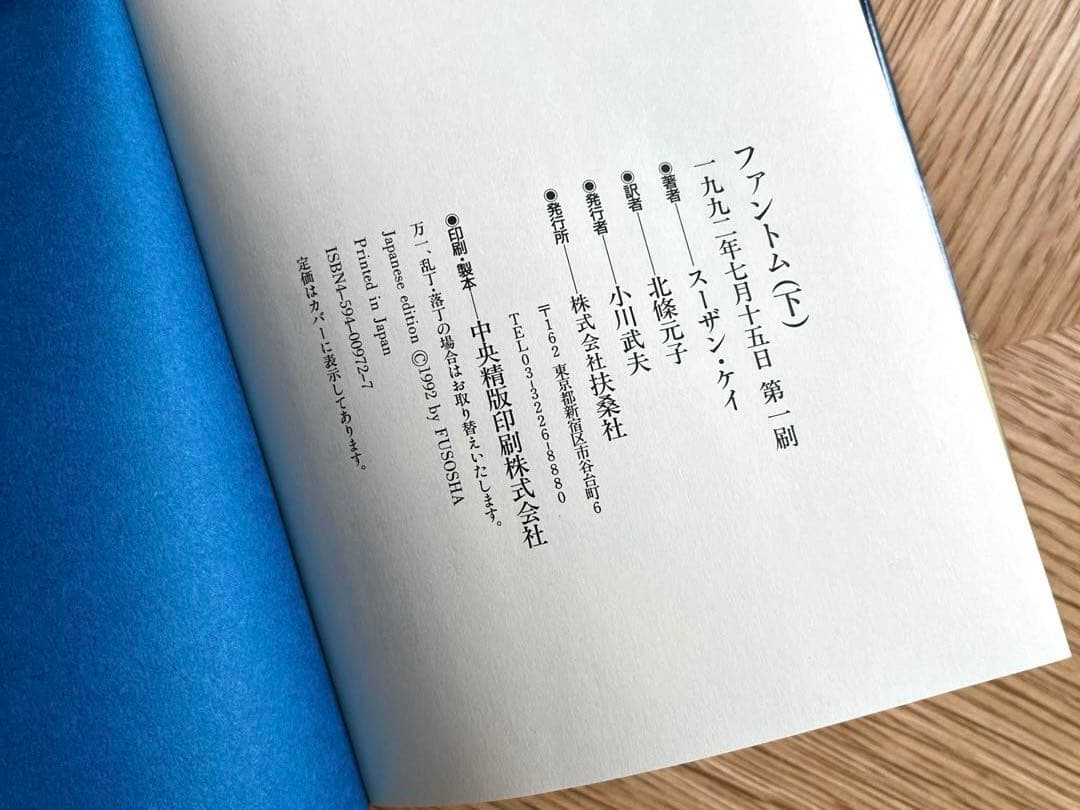 ファントム(下)
一九九二年七月十五日 第一刷
◉著者――スーザン・ケイ
◉訳者――北條元子
◉発行者――小川武夫
◉発行所――株式会社扶桑社
〒162 東京都新宿区市谷台町6
TEL03-3226-8880
◉印刷・製本――中央精版印刷株式会社
万一、乱丁・落丁の場合はお取り替えいたします。
Japanese edition ©1992 by FUSOSHA
Printed in Japan
ISBN4-594-00972-7
定価はカバーに表示してあります。